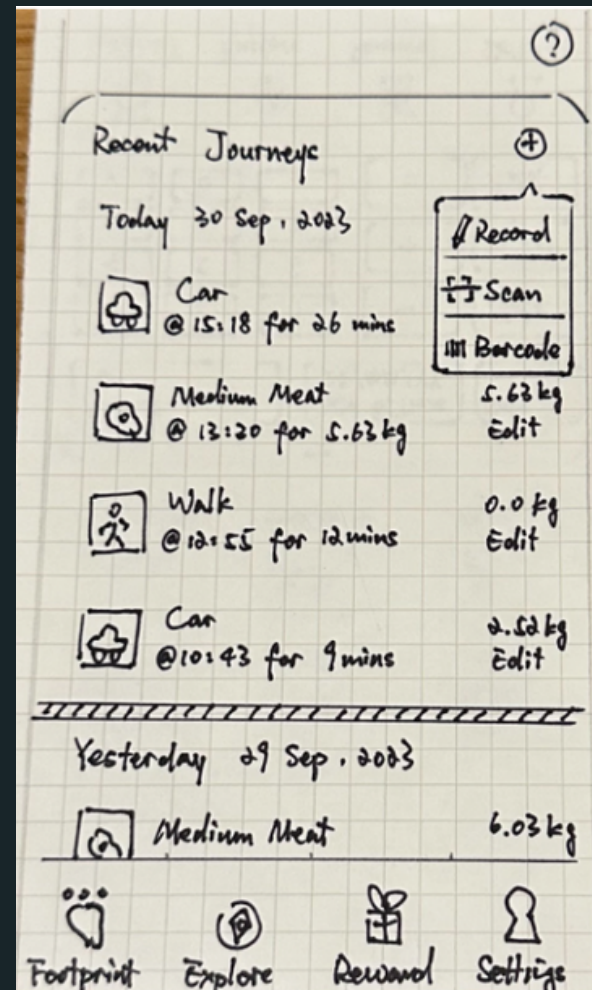 ?
Recent Journeys +
Today 30 Sep. 2023
Record
Scan
Barcode
Car
@ 15:18 for 26 mins
Medium Meat 5.63 kg
@ 13:20 for 5.63 kg Edit
Walk 0.0 kg
@ 12:55 for 12 mins Edit
Car 2.52 kg
@ 10:43 for 9 mins Edit
Yesterday 29 Sep. 2023
Medium Meat 6.03 kg
Footprint Explore Reward Settings